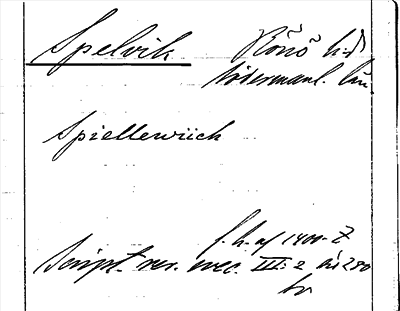 Spelvik Rönö hd
Södermanl. län.
Spiellewiich
f. h. af 1400-t
Script. rer. svec. III: 2 sid 280